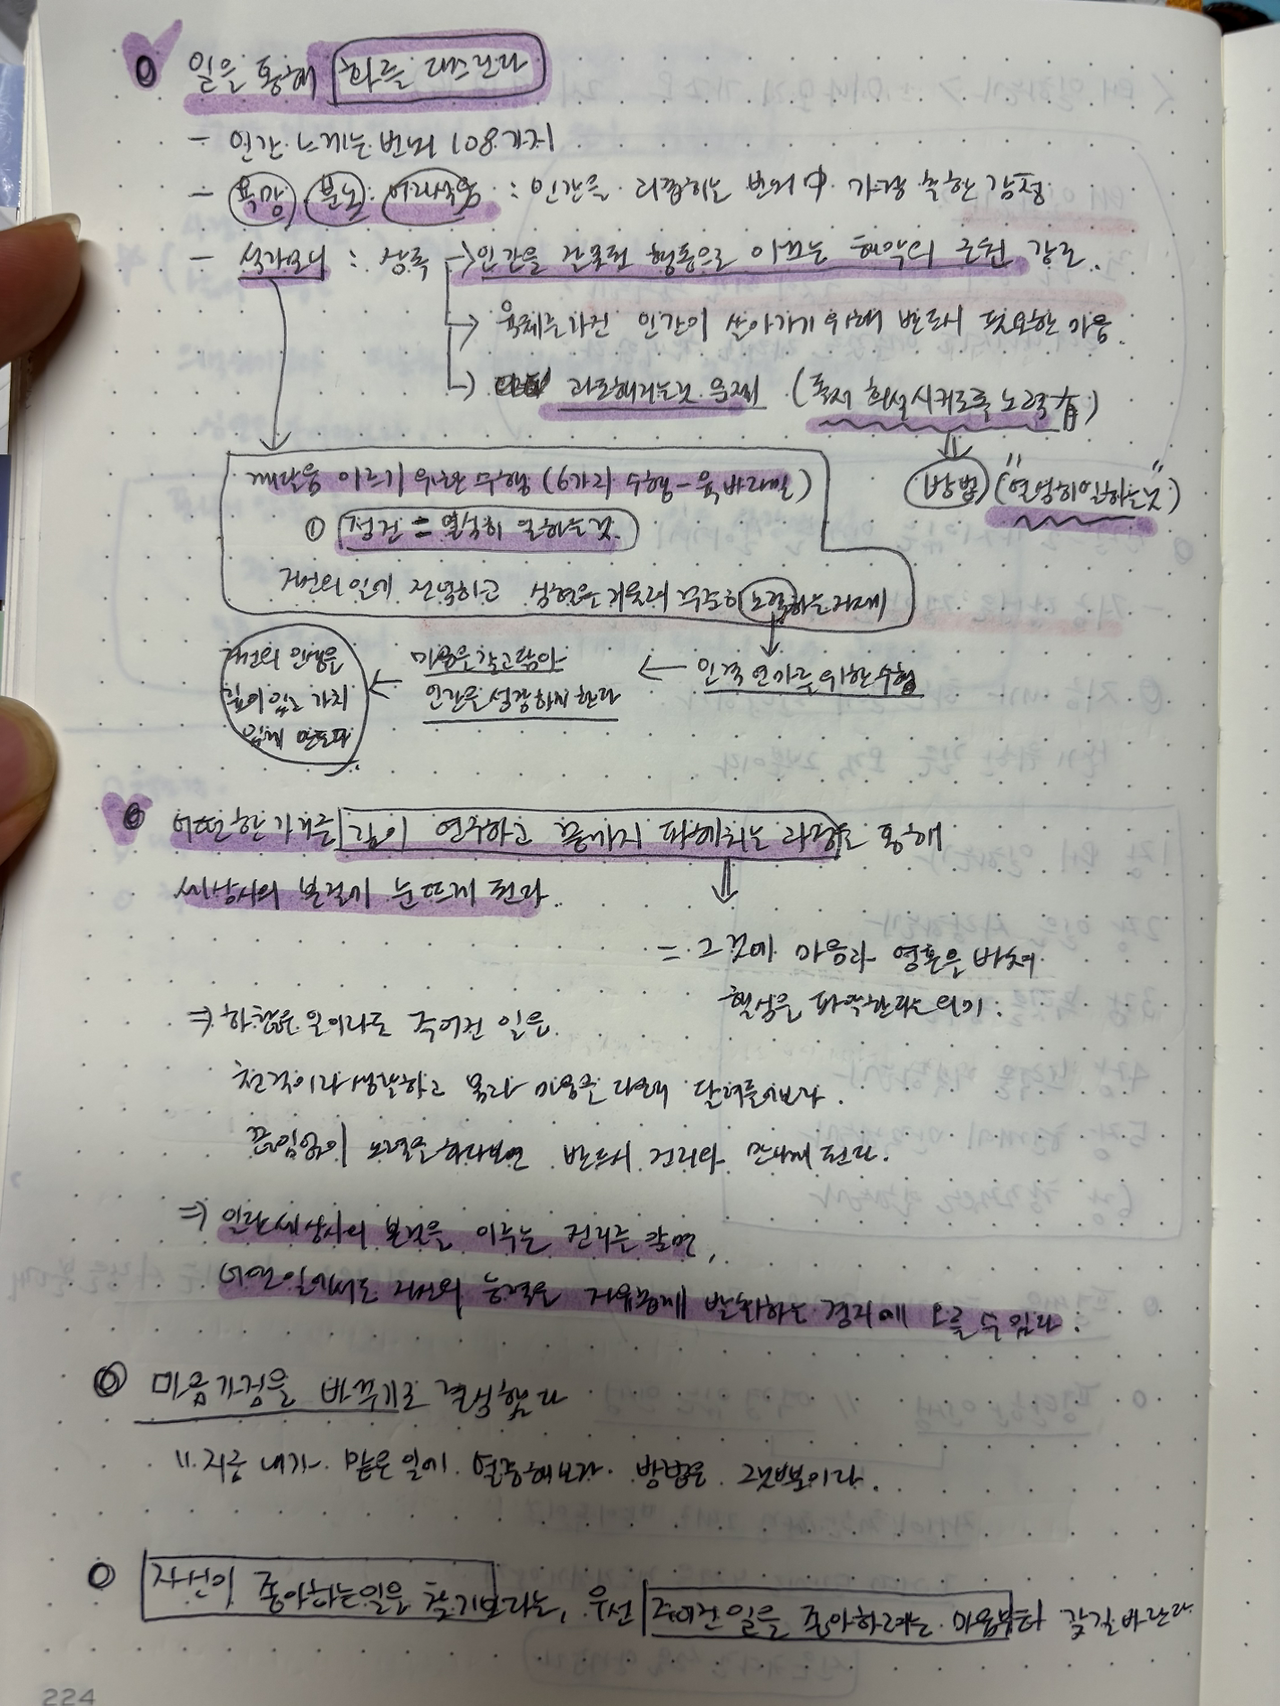 일을 통해 화를 다스린다
- 인간 느끼는 번뇌 108가지
- 욕망, 분노, 어리석음 : 인간을 괴롭히는 번뇌 中 가장 독한 감정
- 석가모니 : 삼독 → 인간을 잘못된 행동으로 이끄는 해악의 근원 강조.
→ 육체를 가진 인간이 살아가기 위해 반드시 필요한 마음.
→ 과도해지는것 문제 (독서 희석시키도록 노력 有)
깨달음 이르기 위한 수행 (6가지 수행 - 육바라밀)
방법 ("열심히일하는것")
① 정진 = 열심히 일하는것.
자신의 일에 전념하고 꾸준히 노력하는자세
인격 연마를 위한 수행
← 마음을갈고닦아
인간을 성장하게 한다
← 자신의 인생을
깊이 있고 가치
있게 만든다
어떠한 가지를 깊이 연구하고 끝까지 파헤치는 과정을 통해
세상사의 본질에 눈뜨게 된다
= 그것에 마음과 영혼을 바쳐
핵심을 파악한다는 의미.
⇒ 하찮은 일이라도 주어진 일을
천직이라 생각하고 몸과 마음을 다해 달려들어보라.
끊임없이 노력을 하다보면 반드시 진리와 만나게 된다.
⇒ 일단 세상사의 본질을 이루는 진리를 알면,
어떤 일에서도 자신의 능력을 자유롭게 발휘하는 경지에 오를 수 있다.
마음가짐을 바꾸기로 결심했다
" 지금 내가 맡은 일에 열중해보자. 방법은 그것뿐이다.
자신이 좋아하는일을 찾기보다는, 우선 주어진 일을 좋아하려는 마음부터 갖길 바란다
224